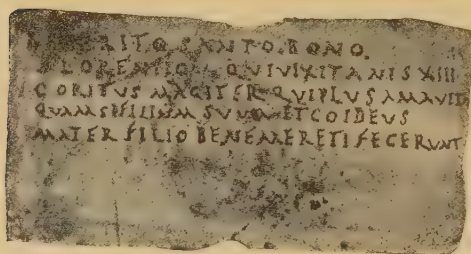 SPIRITO SANTO BONO.
FLORENTIO QVI VIXIT ANIS XIII
CORITVS MAGITER QVI PLVS AMAVIT
QVAM SI FILIVM SVVM ET COIDEVS
MATER FILIO BENEMERETI FECERVNT